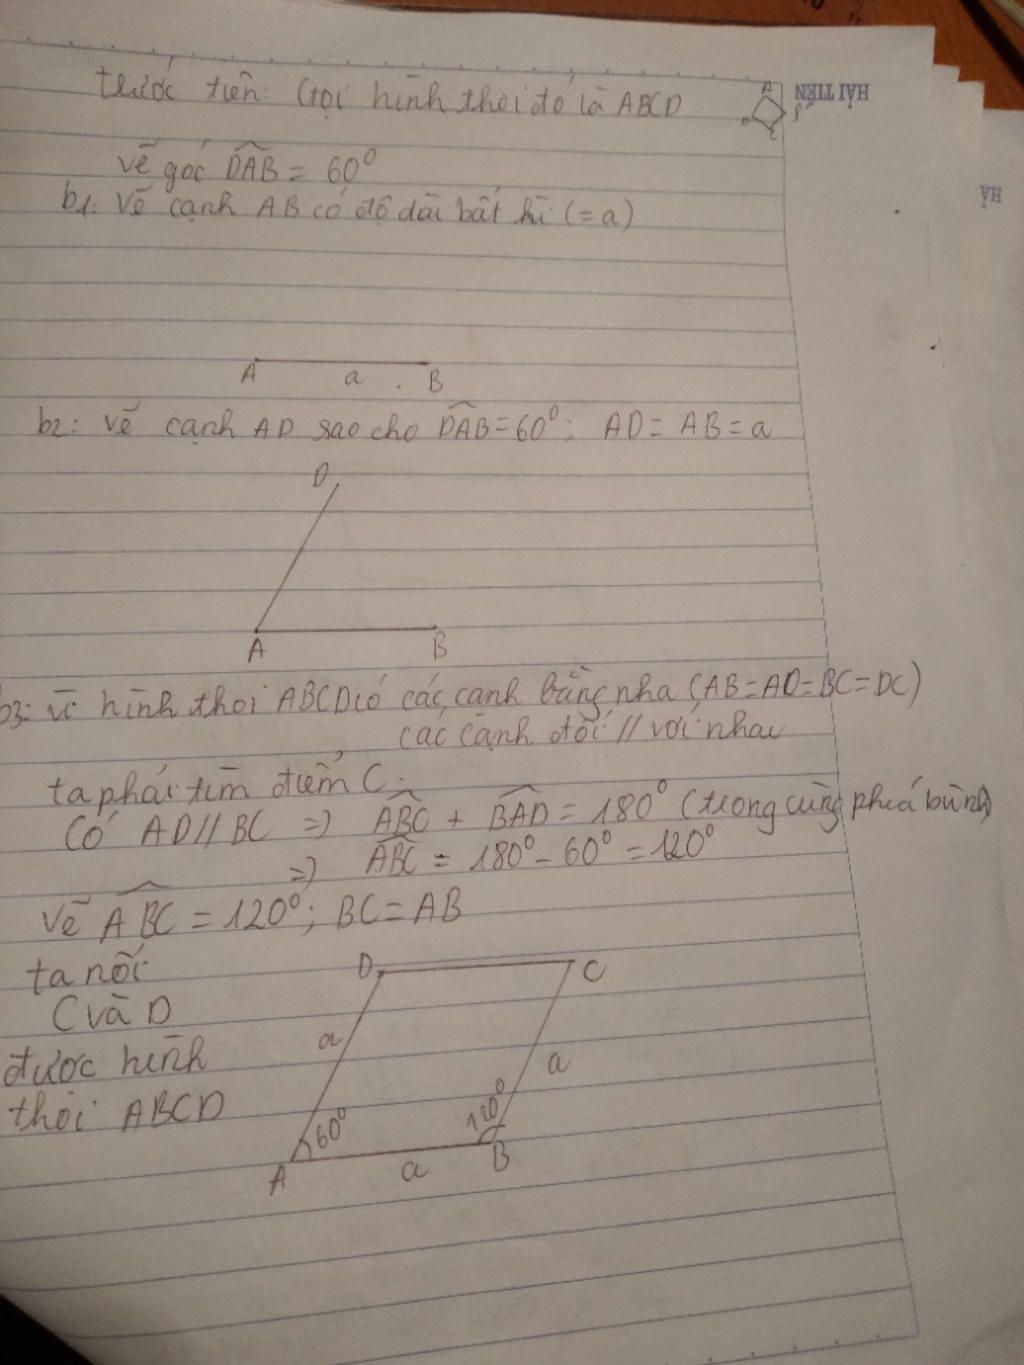 trước tiên: Gọi hình thoi đó là ABCD
HẢI TIẾN
A
B
D
C
vẽ góc DAB = 60⁰
HẢ
b1: Vẽ cạnh AB có độ dài bất kì (= a)
A a B
b2: vẽ cạnh AD sao cho DAB = 60⁰; AD = AB = a
D
A B
b3: vì hình thoi ABCD có các cạnh bằng nha (AB=AD=BC=DC)
các cạnh đối // với nhau
ta phải tìm điểm C.
Có AD // BC => ABC + BAD = 180⁰ (trong cùng phía bù nh)
=> ABC = 180⁰ - 60⁰ = 120⁰
Vẽ ABC = 120⁰; BC = AB
ta nối
C và D
được hình
thoi ABCD
D C
a a
60⁰ 120⁰
A a B